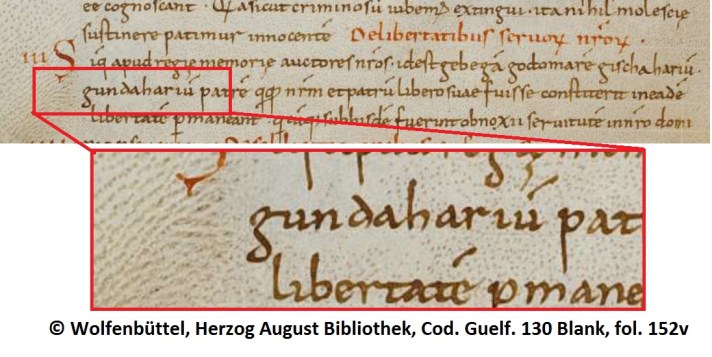 ee cognoscant · Qa sicut criminosū iubemꝰ extingui · ita nihil molescię
sustinere patimur innocentē De libertatibus servoꝝ nr̄oꝝ ·
iii Siq apud regię memorię auctores nr̄os · id est gebegā godomare gischahariū ·
gundahariū patrē qq nr̄m et patruū liberos uae fuisse constiterit in eadē
libertatē ꝑmaneant · sub hisdē fuerunt obnoxii servitute in nr̄o domi
gundahariū pat
libertatē ꝑmane
© Wolfenbüttel, Herzog August Bibliothek, Cod. Guelf. 130 Blank, fol. 152v